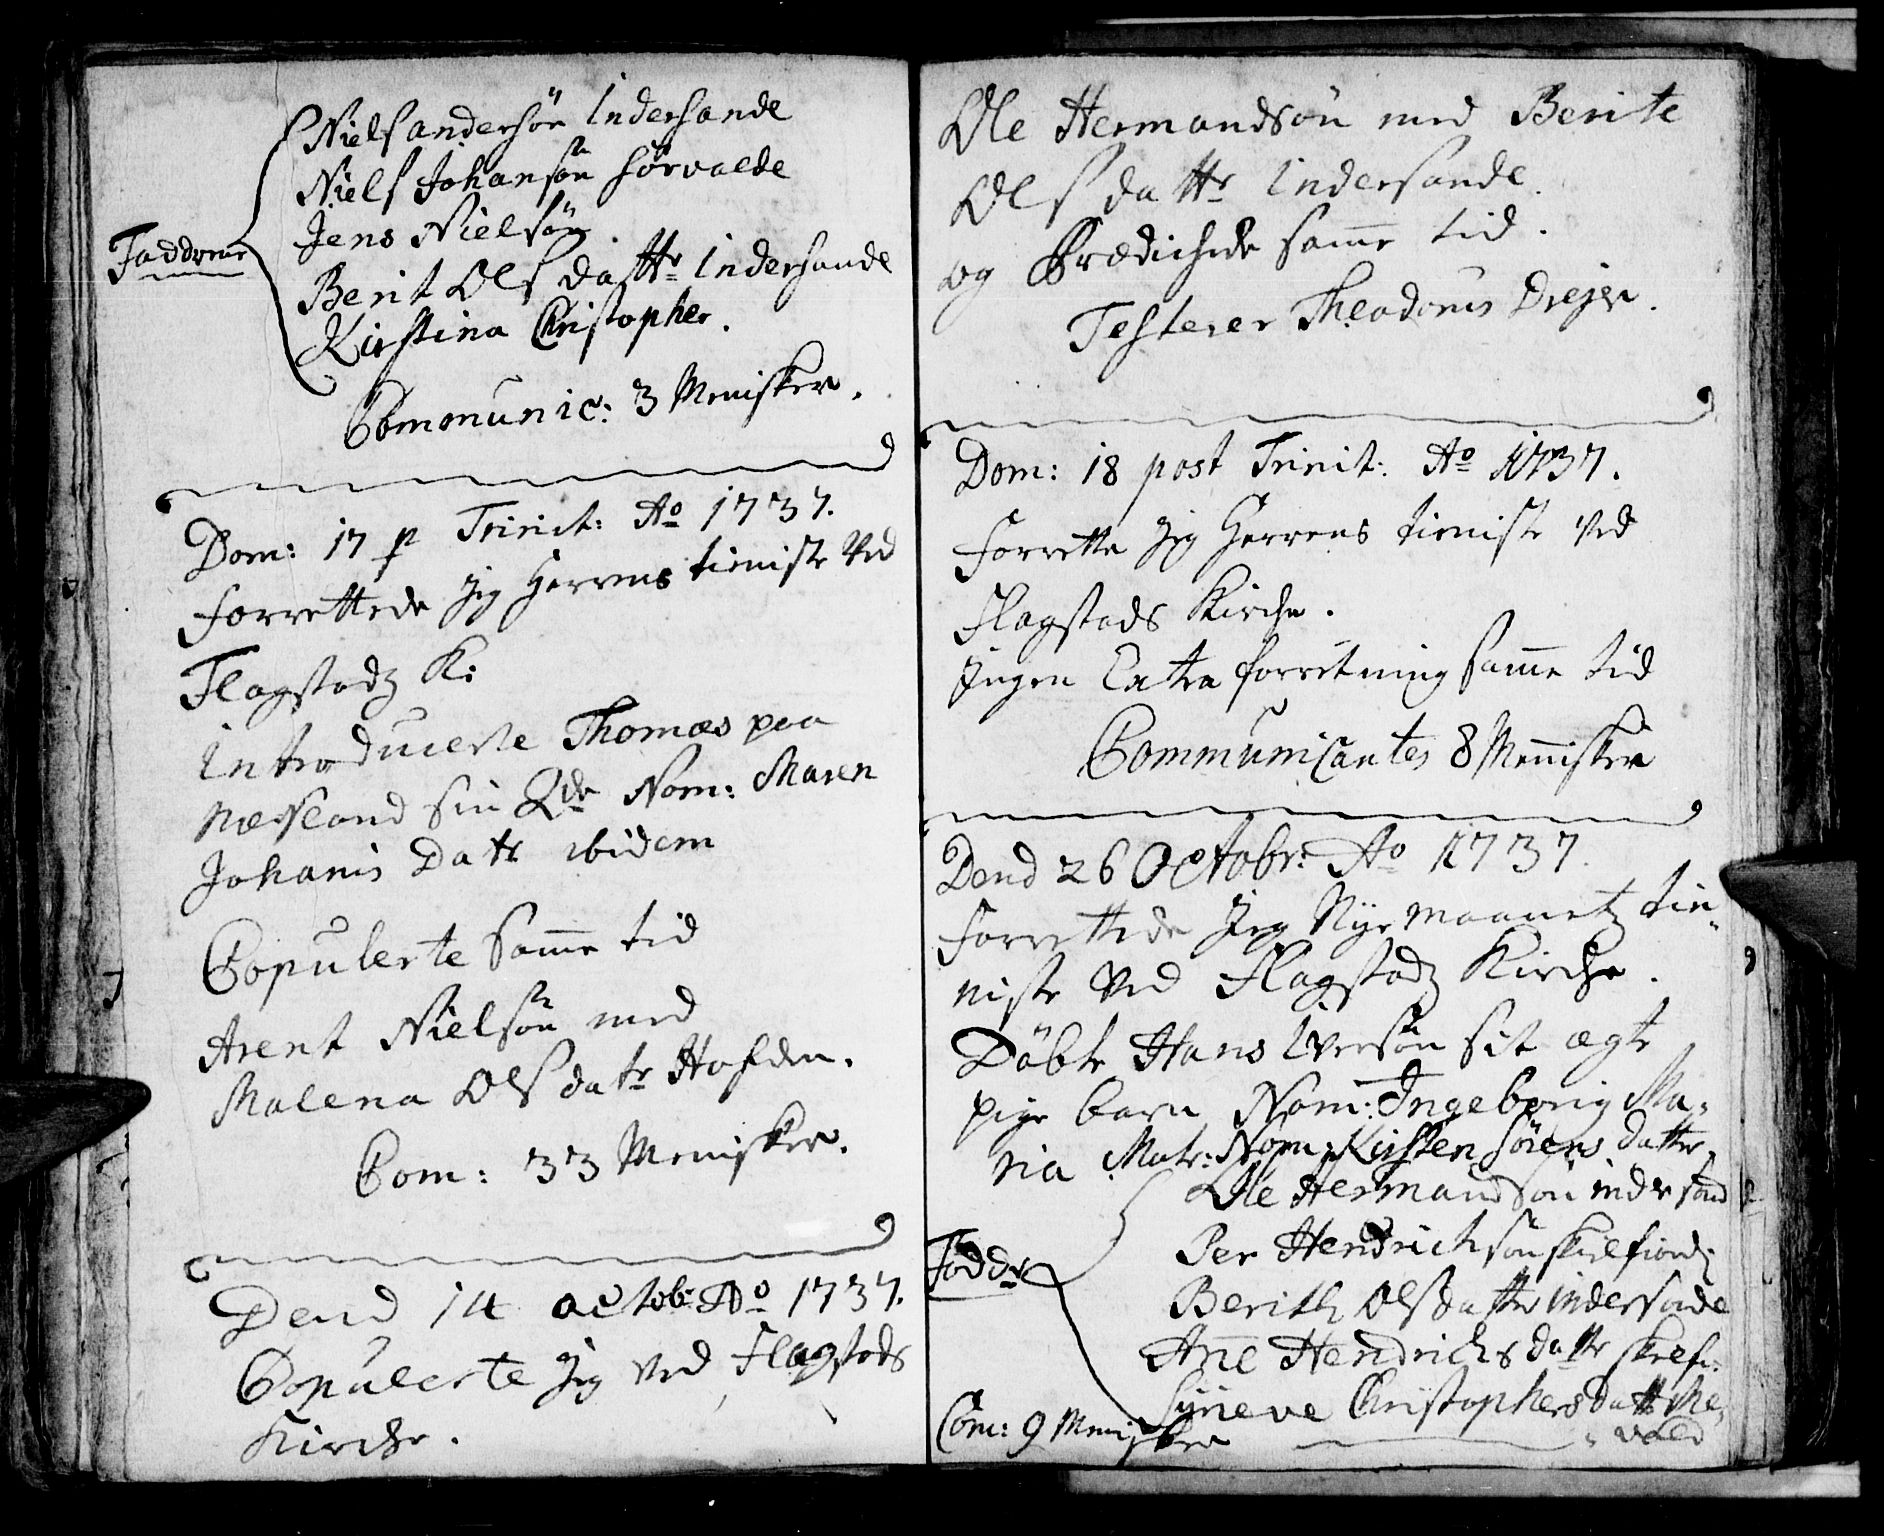 Niels andersøn Indersande
Niels Johansøn Sørvalde
Jens Nielsøn
Faddrene
Berit Ols dattr Indersande
Kirstina Christopher.
Comonunic: 3 Menisker.
Dom: 17 p Trinit: Ao 1737.
forrettede jeg Herrens tieniste ved
Flagstadz K:
Introducerte Thomas paa
Næsland sin Qde Nom: Maren
Johanis Datr ibidem
Copulerte samme tid
Arent Nielsøn med
Malena Olsdatr Hofden.
Com: 33 Menisker.
Dend 14 octob: Ao 1737.
Copulerte jeg ved Flagstads
Kirche.
Ole Hermandsøn med Berite
Ols dattr Indersande.
og Prædichede samme tid.
Testerer Theodorus Dreyer.
Dom: 18 post Trinit: Ao 1737.
forrette jeg Herrens tieniste ved
Flagstads Kirche.
Ingen Extra forretning samme tid
Communicantes 8 Menisker
Dend 26 Octobr: Ao 1737.
forrettede jeg Nye maanetz tie„
niste ved Flagstadz Kirche.
Døbte Hans Iversøn sit ægte
pige barn Nom: Ingeborig Ma„
ria Matr: Nom: Kirsten Sørens datter
Ole Hermandsøn indersand
Faddr
Per Hendrichsøn skielfiord:
Berith Olsdatter indersande
Ane Hendrichs dattr skielfi:
Syneve Christophersdattr Me„
„vold
Com: 9 Menisker